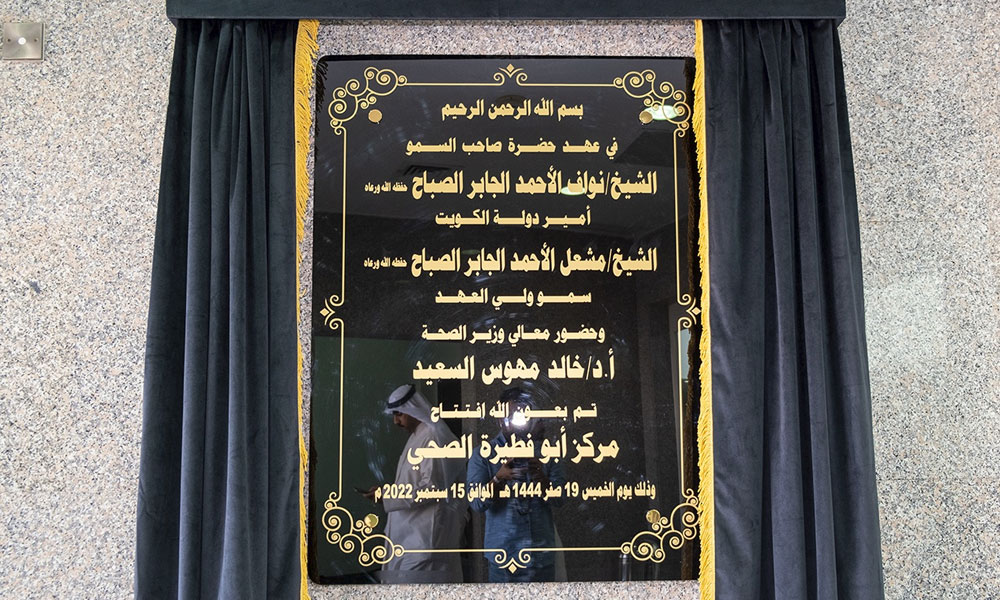 بسم الله الرحمن الرحيم
في عهد حضرة صاحب السمو
الشيخ/نواف الأحمد الجابر الصباح حفظه الله ورعاه
أمير دولة الكويت
الشيخ/مشعل الأحمد الجابر الصباح حفظه الله ورعاه
سمو ولي العهد
وحضور معالي وزير الصحة
أ.د/خالد مهوس السعيد
تم بعون الله افتتاح
مركز أبو فطيرة الصحي
وذلك يوم الخميس 19 صفر 1444 هـ الموافق 15 سبتمبر 2022 م